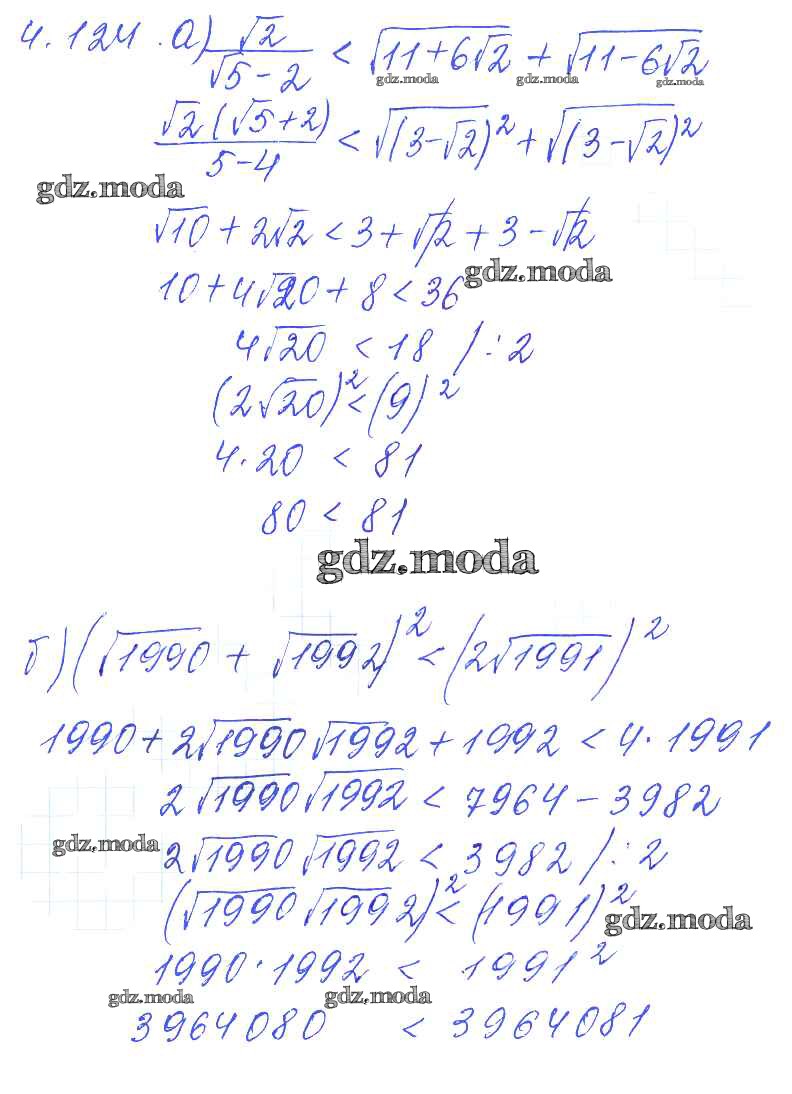 4.124. а) √2/(√5-2) < √(11+6√2) + √(11-6√2)
gdz.moda gdz.moda gdz.moda
√2(√5+2)/(5-4) < √(3-√2)² + √(3-√2)²
gdz.moda
√10 + 2√2 < 3 + √2 + 3 - √2
gdz.moda
10 + 4√20 + 8 < 36
4√20 < 18 / : 2
(2√20)² < (9)²
4·20 < 81
80 < 81
gdz.moda
б) (√1990 + √1992)² < (2√1991)²
1990 + 2√1990√1992 + 1992 < 4·1991
2√1990√1992 < 7964 - 3982
gdz.moda
2√1990√1992 < 3982 / : 2
(√1990√1992)² < (1991)²
gdz.moda
1990·1992 < 1991²
gdz.moda gdz.moda
3964080 < 3964081